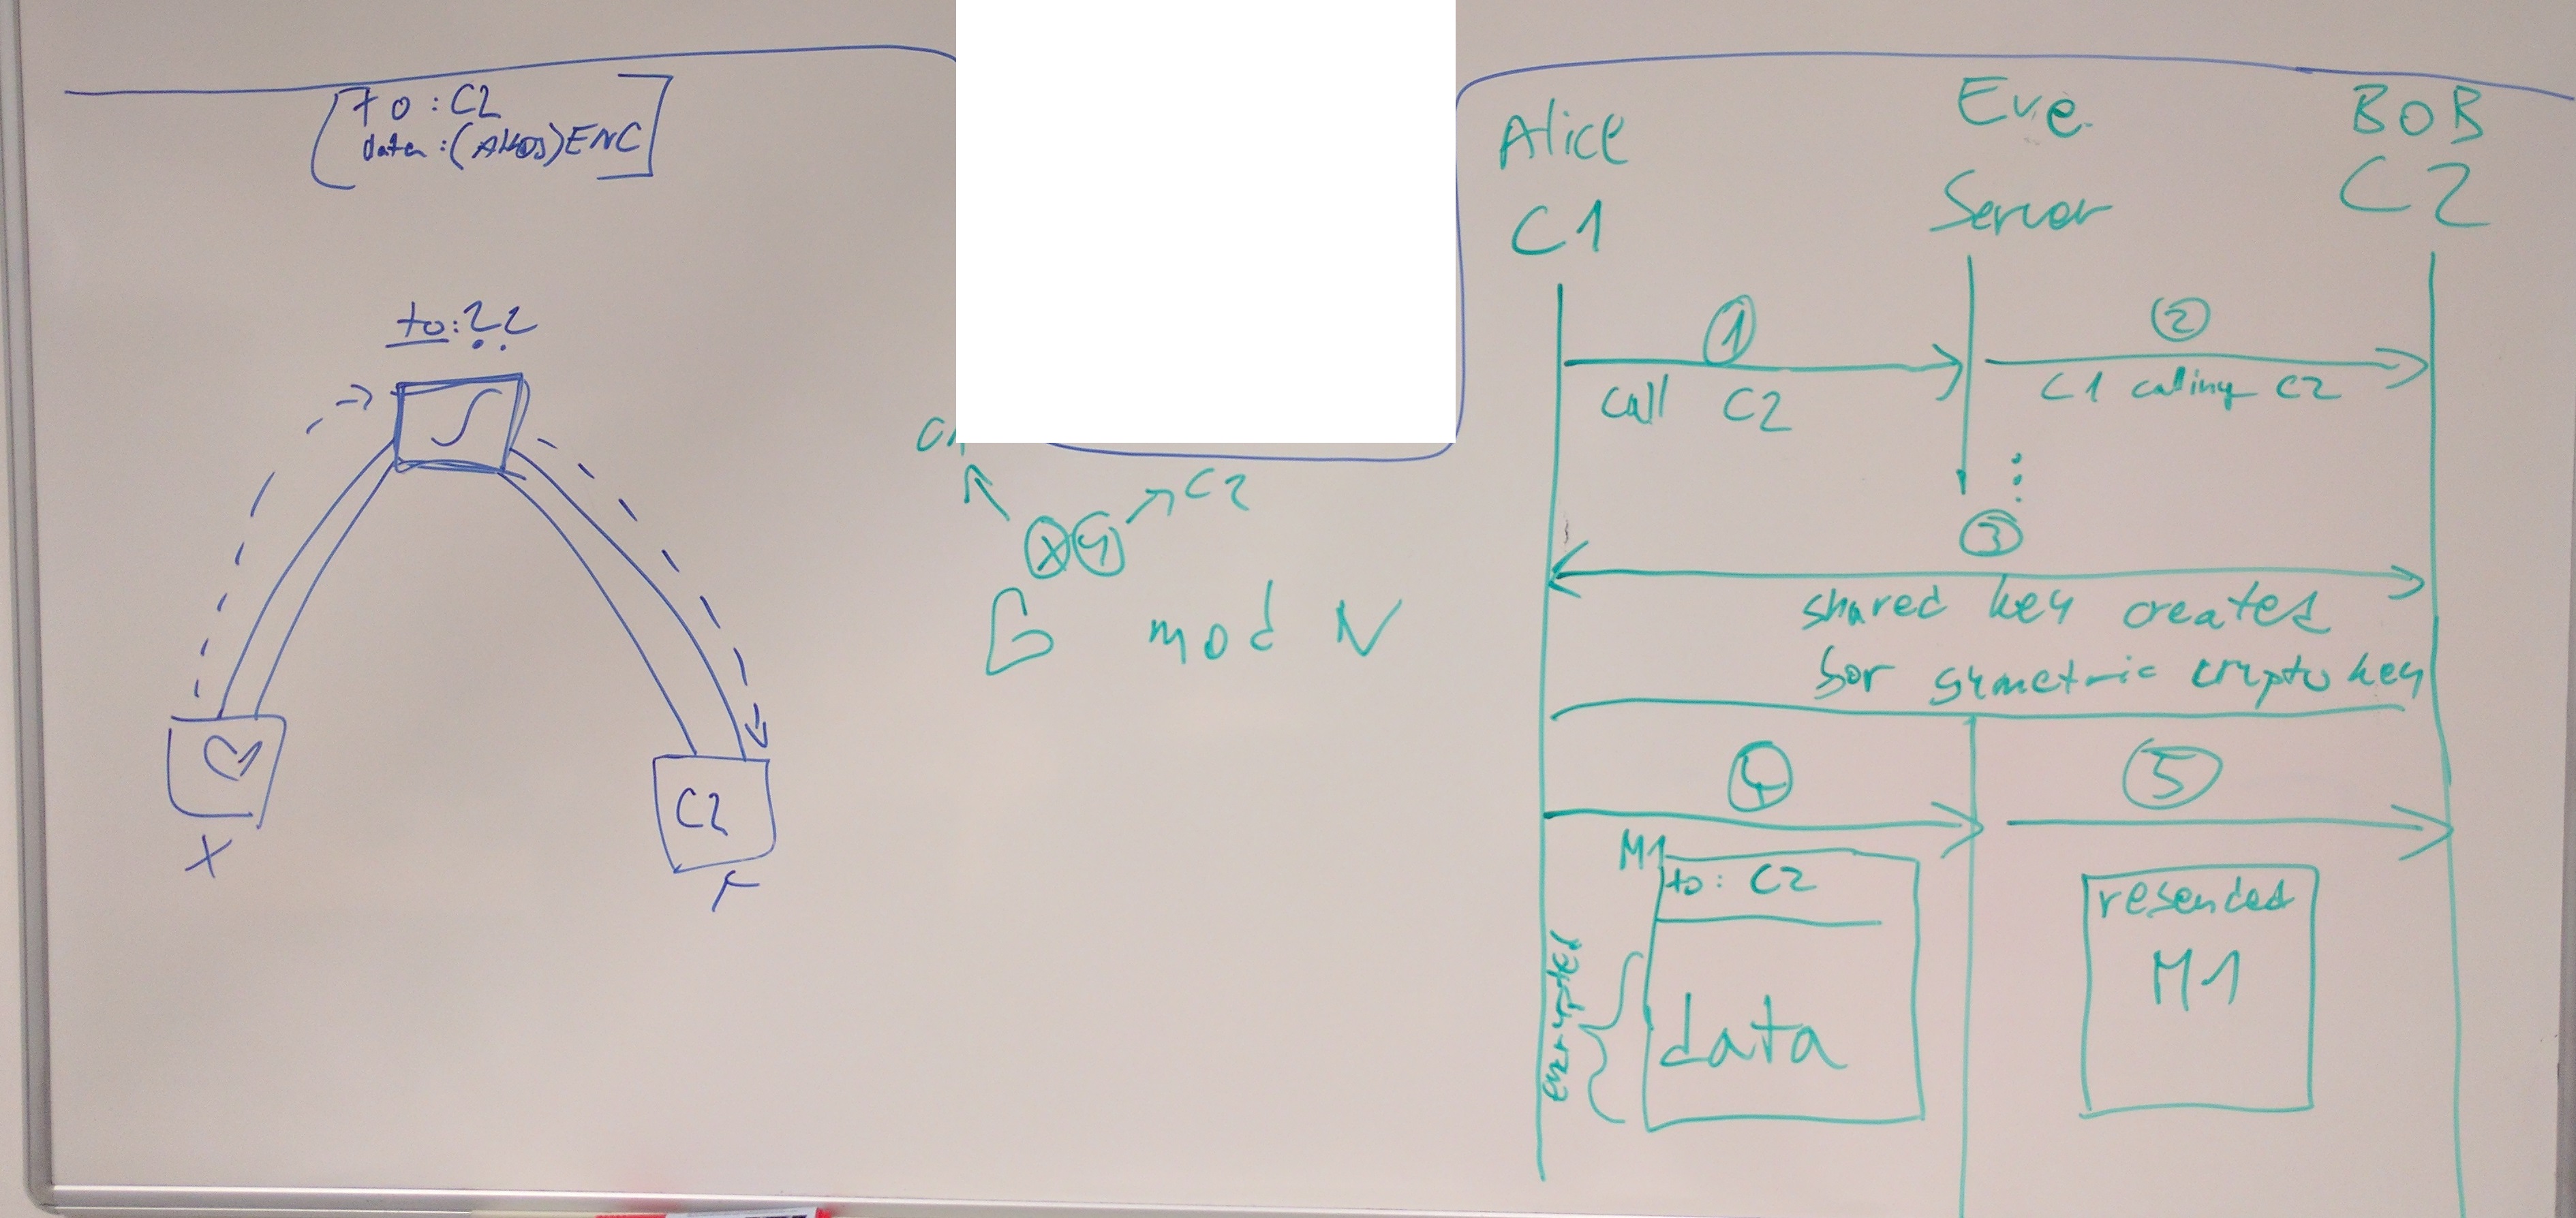 to : C2
data : (AHOJ) ENC
to: ??
S
C2
X
C2
X Y
G mod N
Alice
C1
Eve
Server
BOB
C2
1
call C2
2
C1 calling C2
3
shared key created
for symetric crypto key
4
5
M1
to: C2
encrypted
data
resended
M1